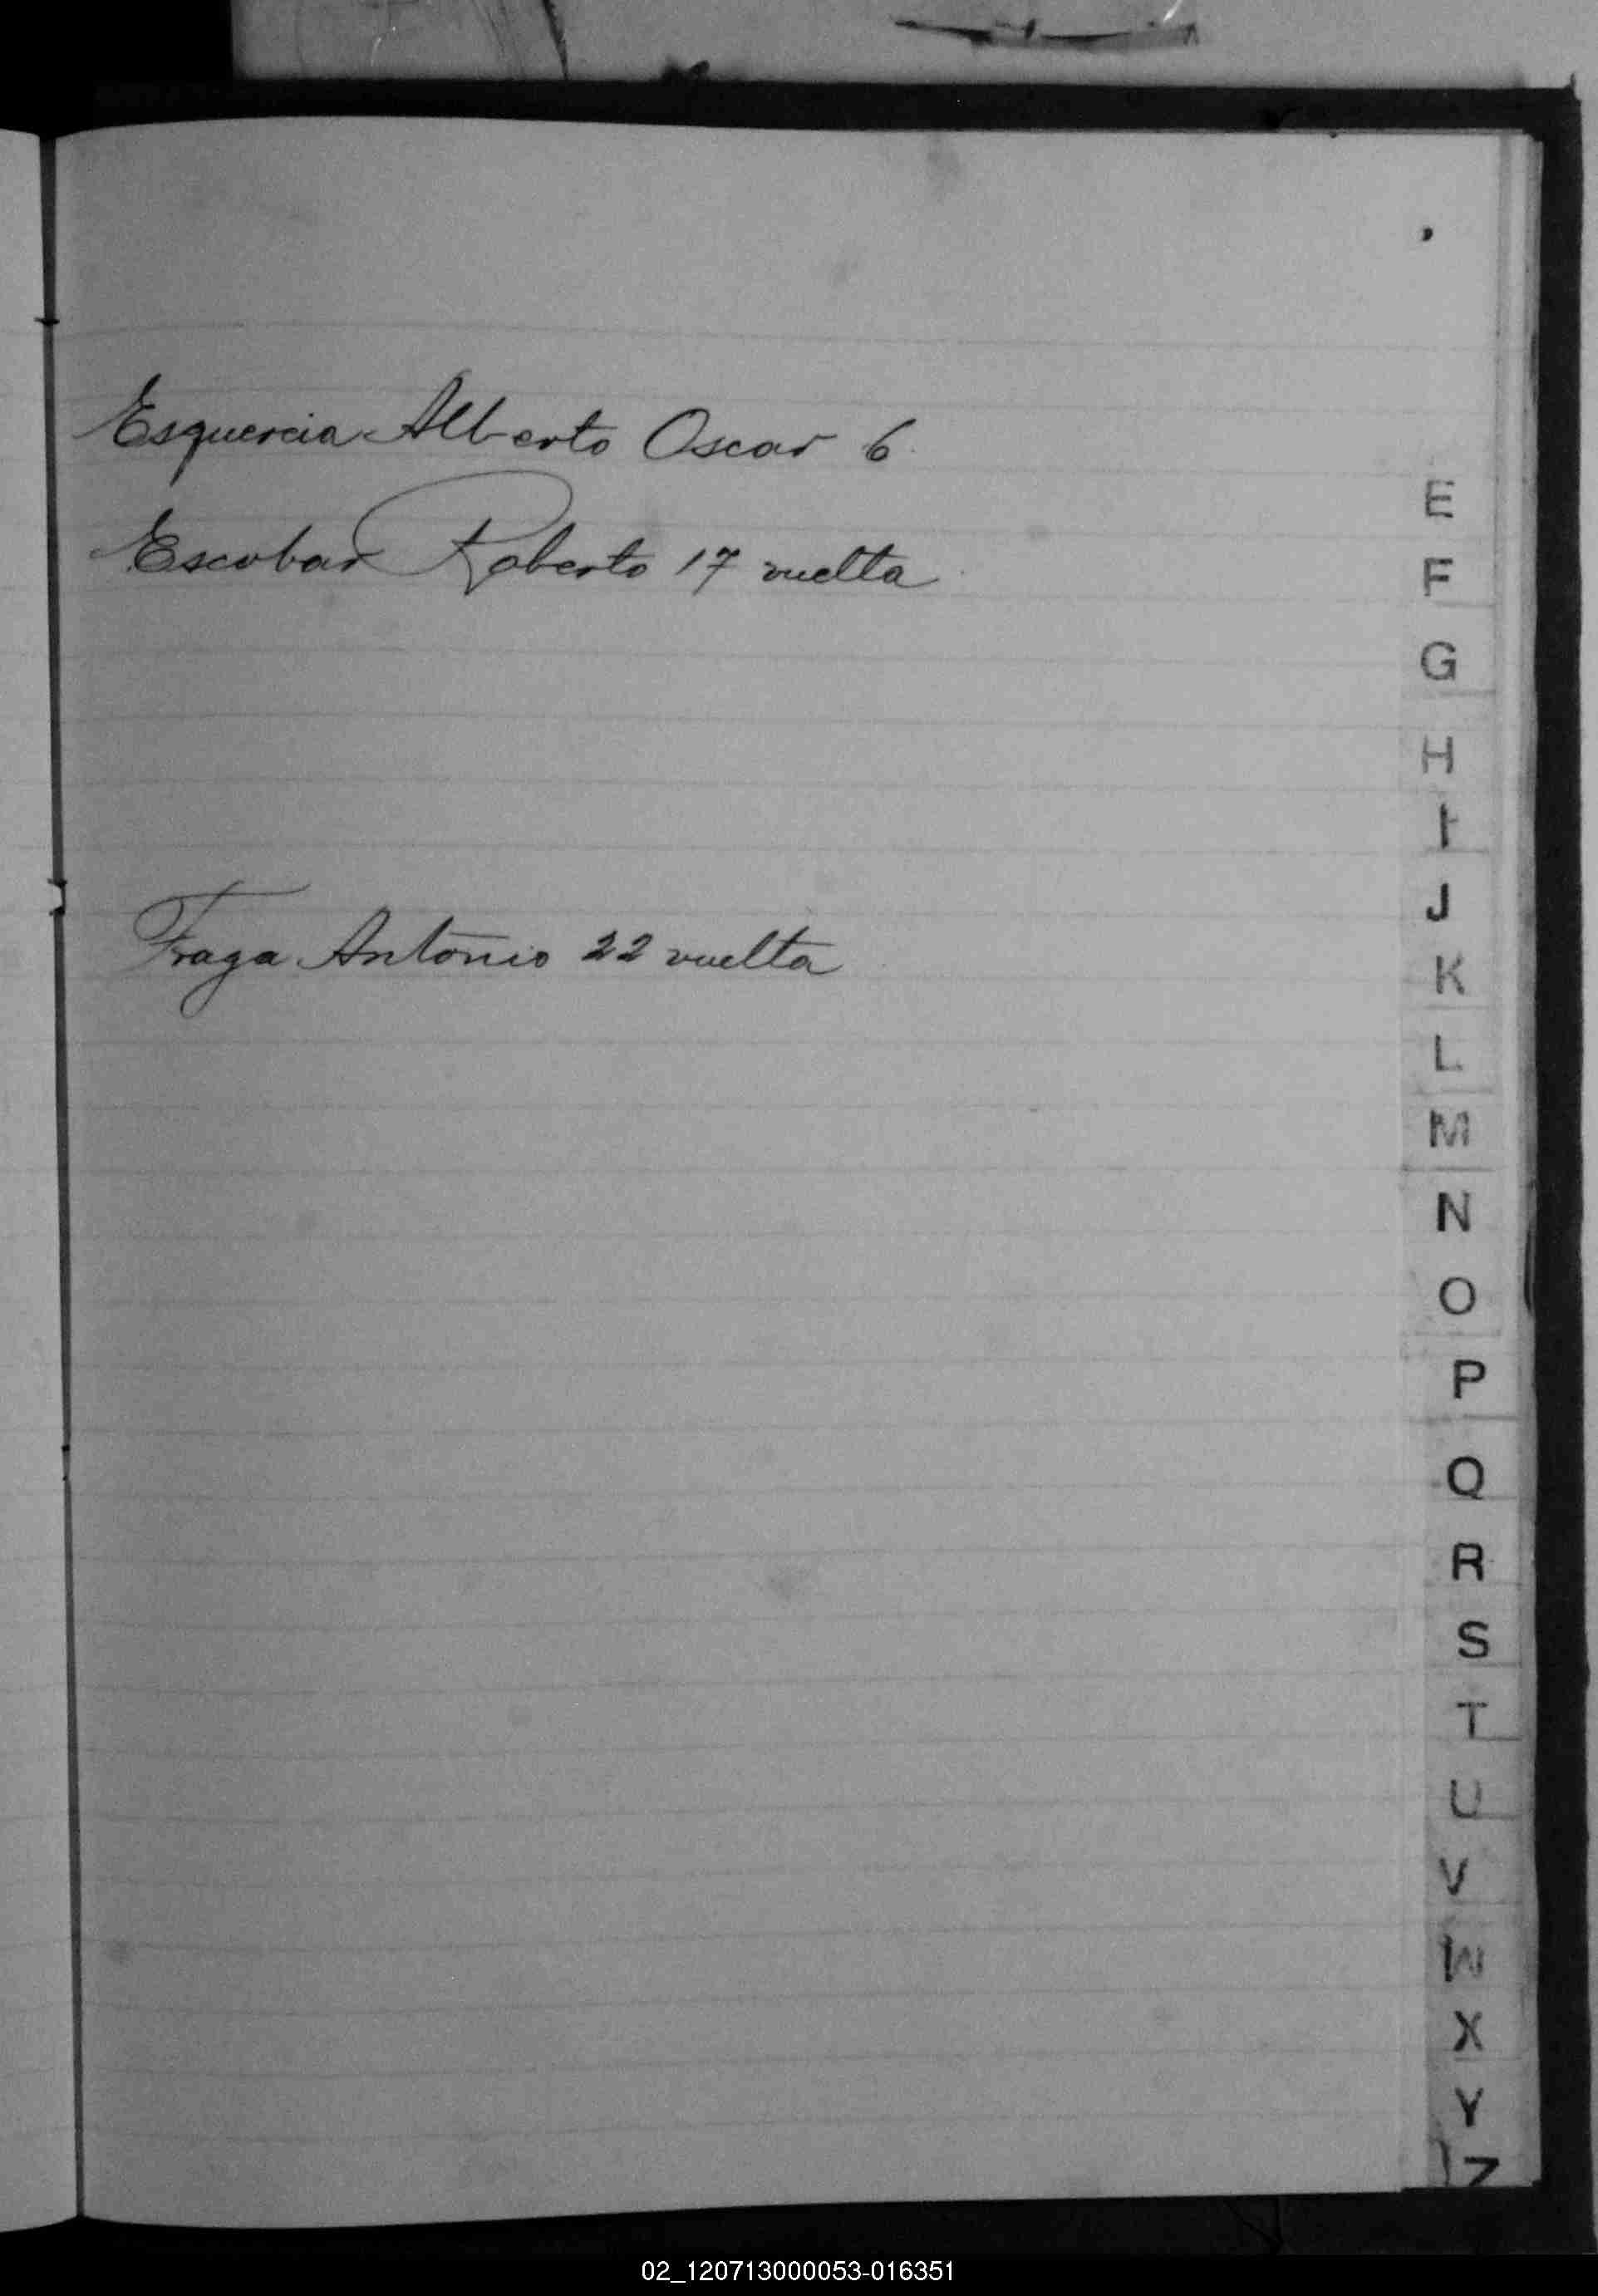 Esquercia Alberto Oscar 6
Escobar Roberto 17 vuelta
Fraga Antonio 22 vuelta
E
F
G
H
I
J
K
L
M
N
O
P
Q
R
S
T
U
V
W
X
Y
Z
02_120713000053-016351